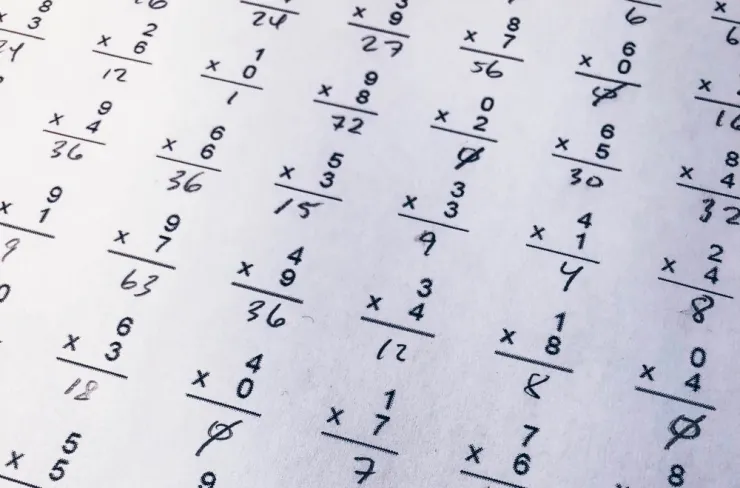 9 8 6
x 9 x 7 x 0
24 27 56 0 16
8 2 1 9 0 6 8
x 3 x 6 x 0 x 8 x 2 x 5 x 4
24 12 1 72 0 30 32
9 6 5 3 4 2
x 4 x 6 x 3 x 3 x 1 x 4
36 36 15 9 4 8
9 9 4 3 1 0
x 1 x 7 x 9 x 4 x 8 x 4
9 63 36 12 8 0
6 4 1 7 8
x 3 x 0 x 7 x 6
18 0 7
5 9
x 5